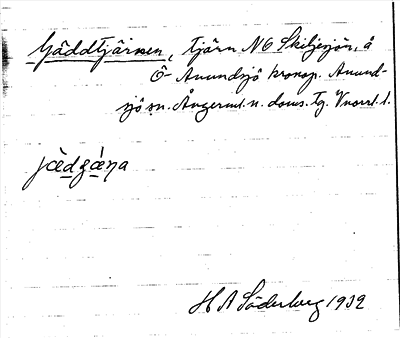 Gäddtjärnen, tjärn NO Skiljesjön, å
Ö- Anundsjö kronop. Anund-
sjö sn. Ångerml. n. doms. Tg. Vnorrl. l.
jæ̀dʒǽŋa
H A Söderberg 1932